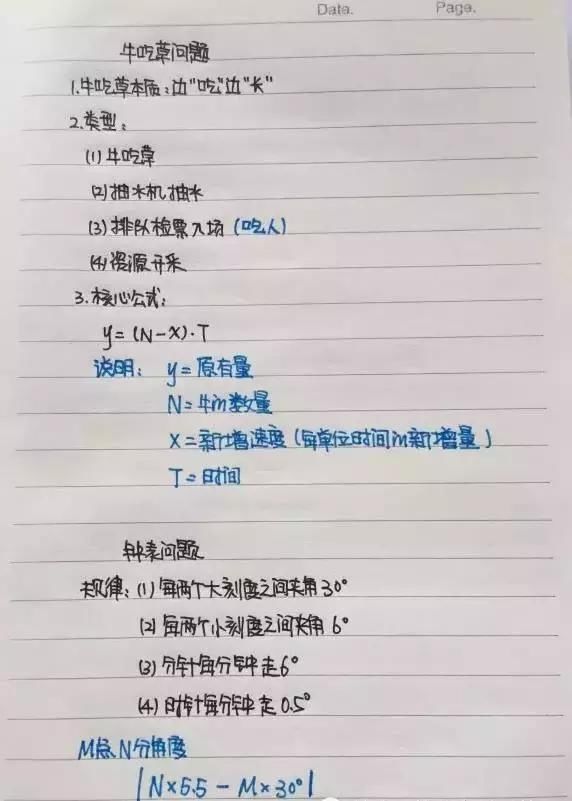 Date.    Page.
牛吃草问题
1.牛吃草本质:边"吃"边"长"
2.类型:
(1)牛吃草
(2)抽水机抽水
(3)排队检票入场(吃人)
(4)资源开采
3.核心公式:
y=(N-X)·T
说明: y=原有量
N=牛的数量
X=新增速度(每单位时间的新增量)
T=时间
钟表问题
规律:(1)每两个大刻度之间夹角30°
(2)每两个小刻度之间夹角6°
(3)分针每分钟走6°
(4)时针每分钟走0.5°
M点N分角度
|N×5.5-M×30°|